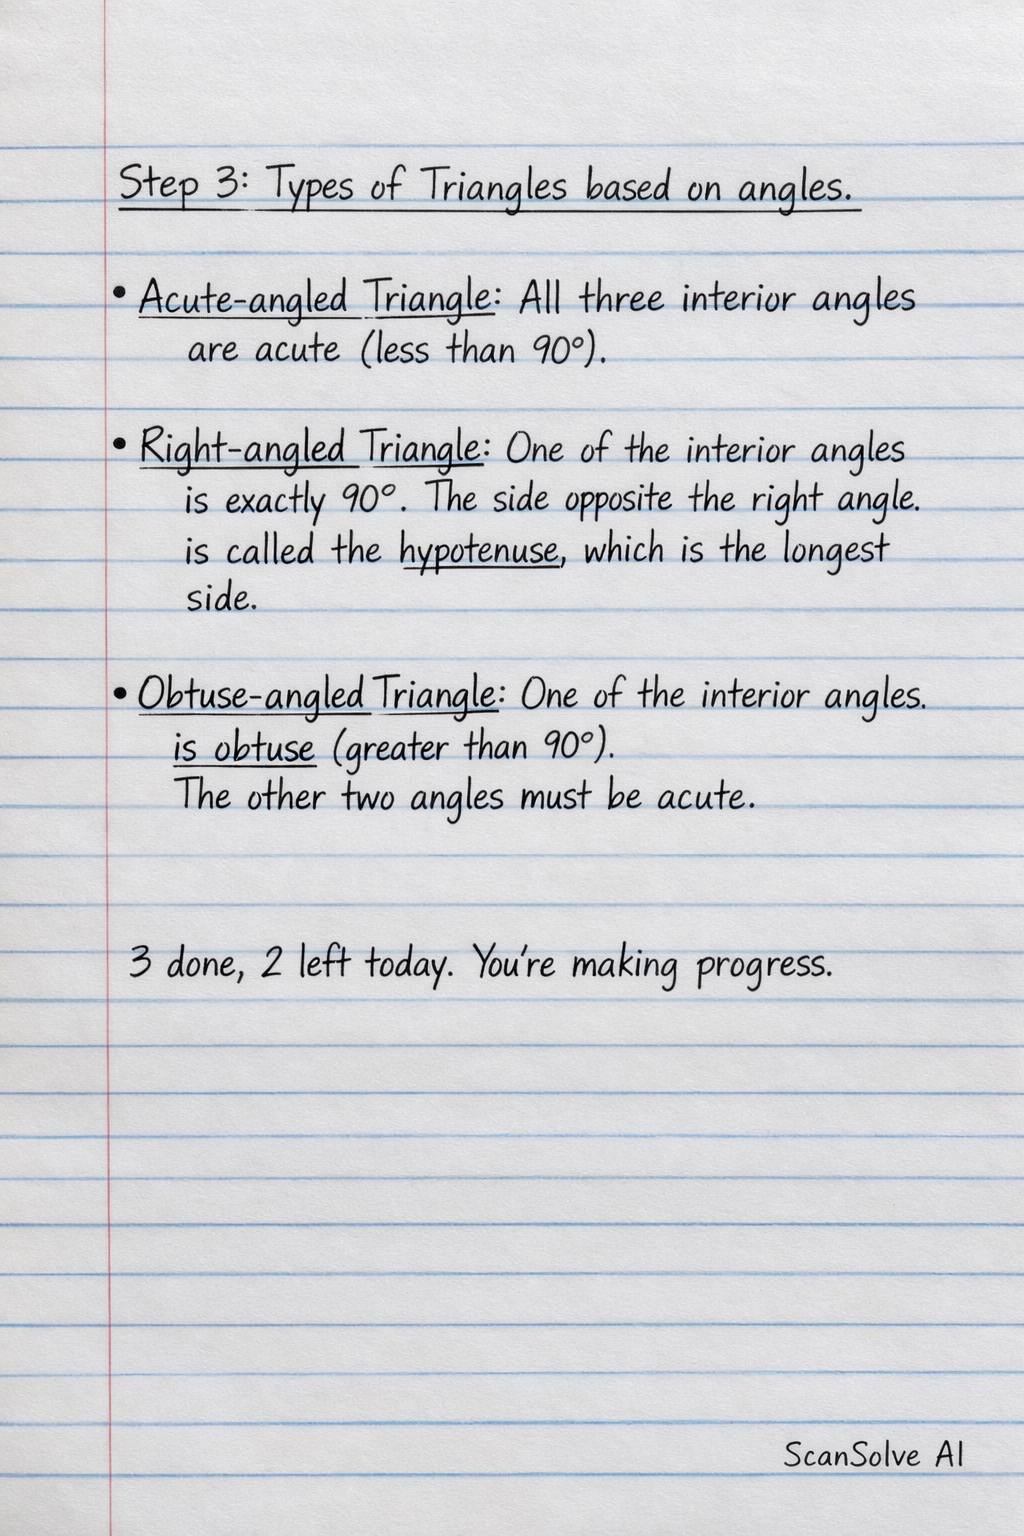 Step 3: Types of Triangles based on angles.
• Acute-angled Triangle: All three interior angles
are acute (less than 90°).
• Right-angled Triangle: One of the interior angles
is exactly 90°. The side opposite the right angle.
is called the hypotenuse, which is the longest
side.
• Obtuse-angled Triangle: One of the interior angles.
is obtuse (greater than 90°).
The other two angles must be acute.
3 done, 2 left today. You're making progress.
ScanSolve AI